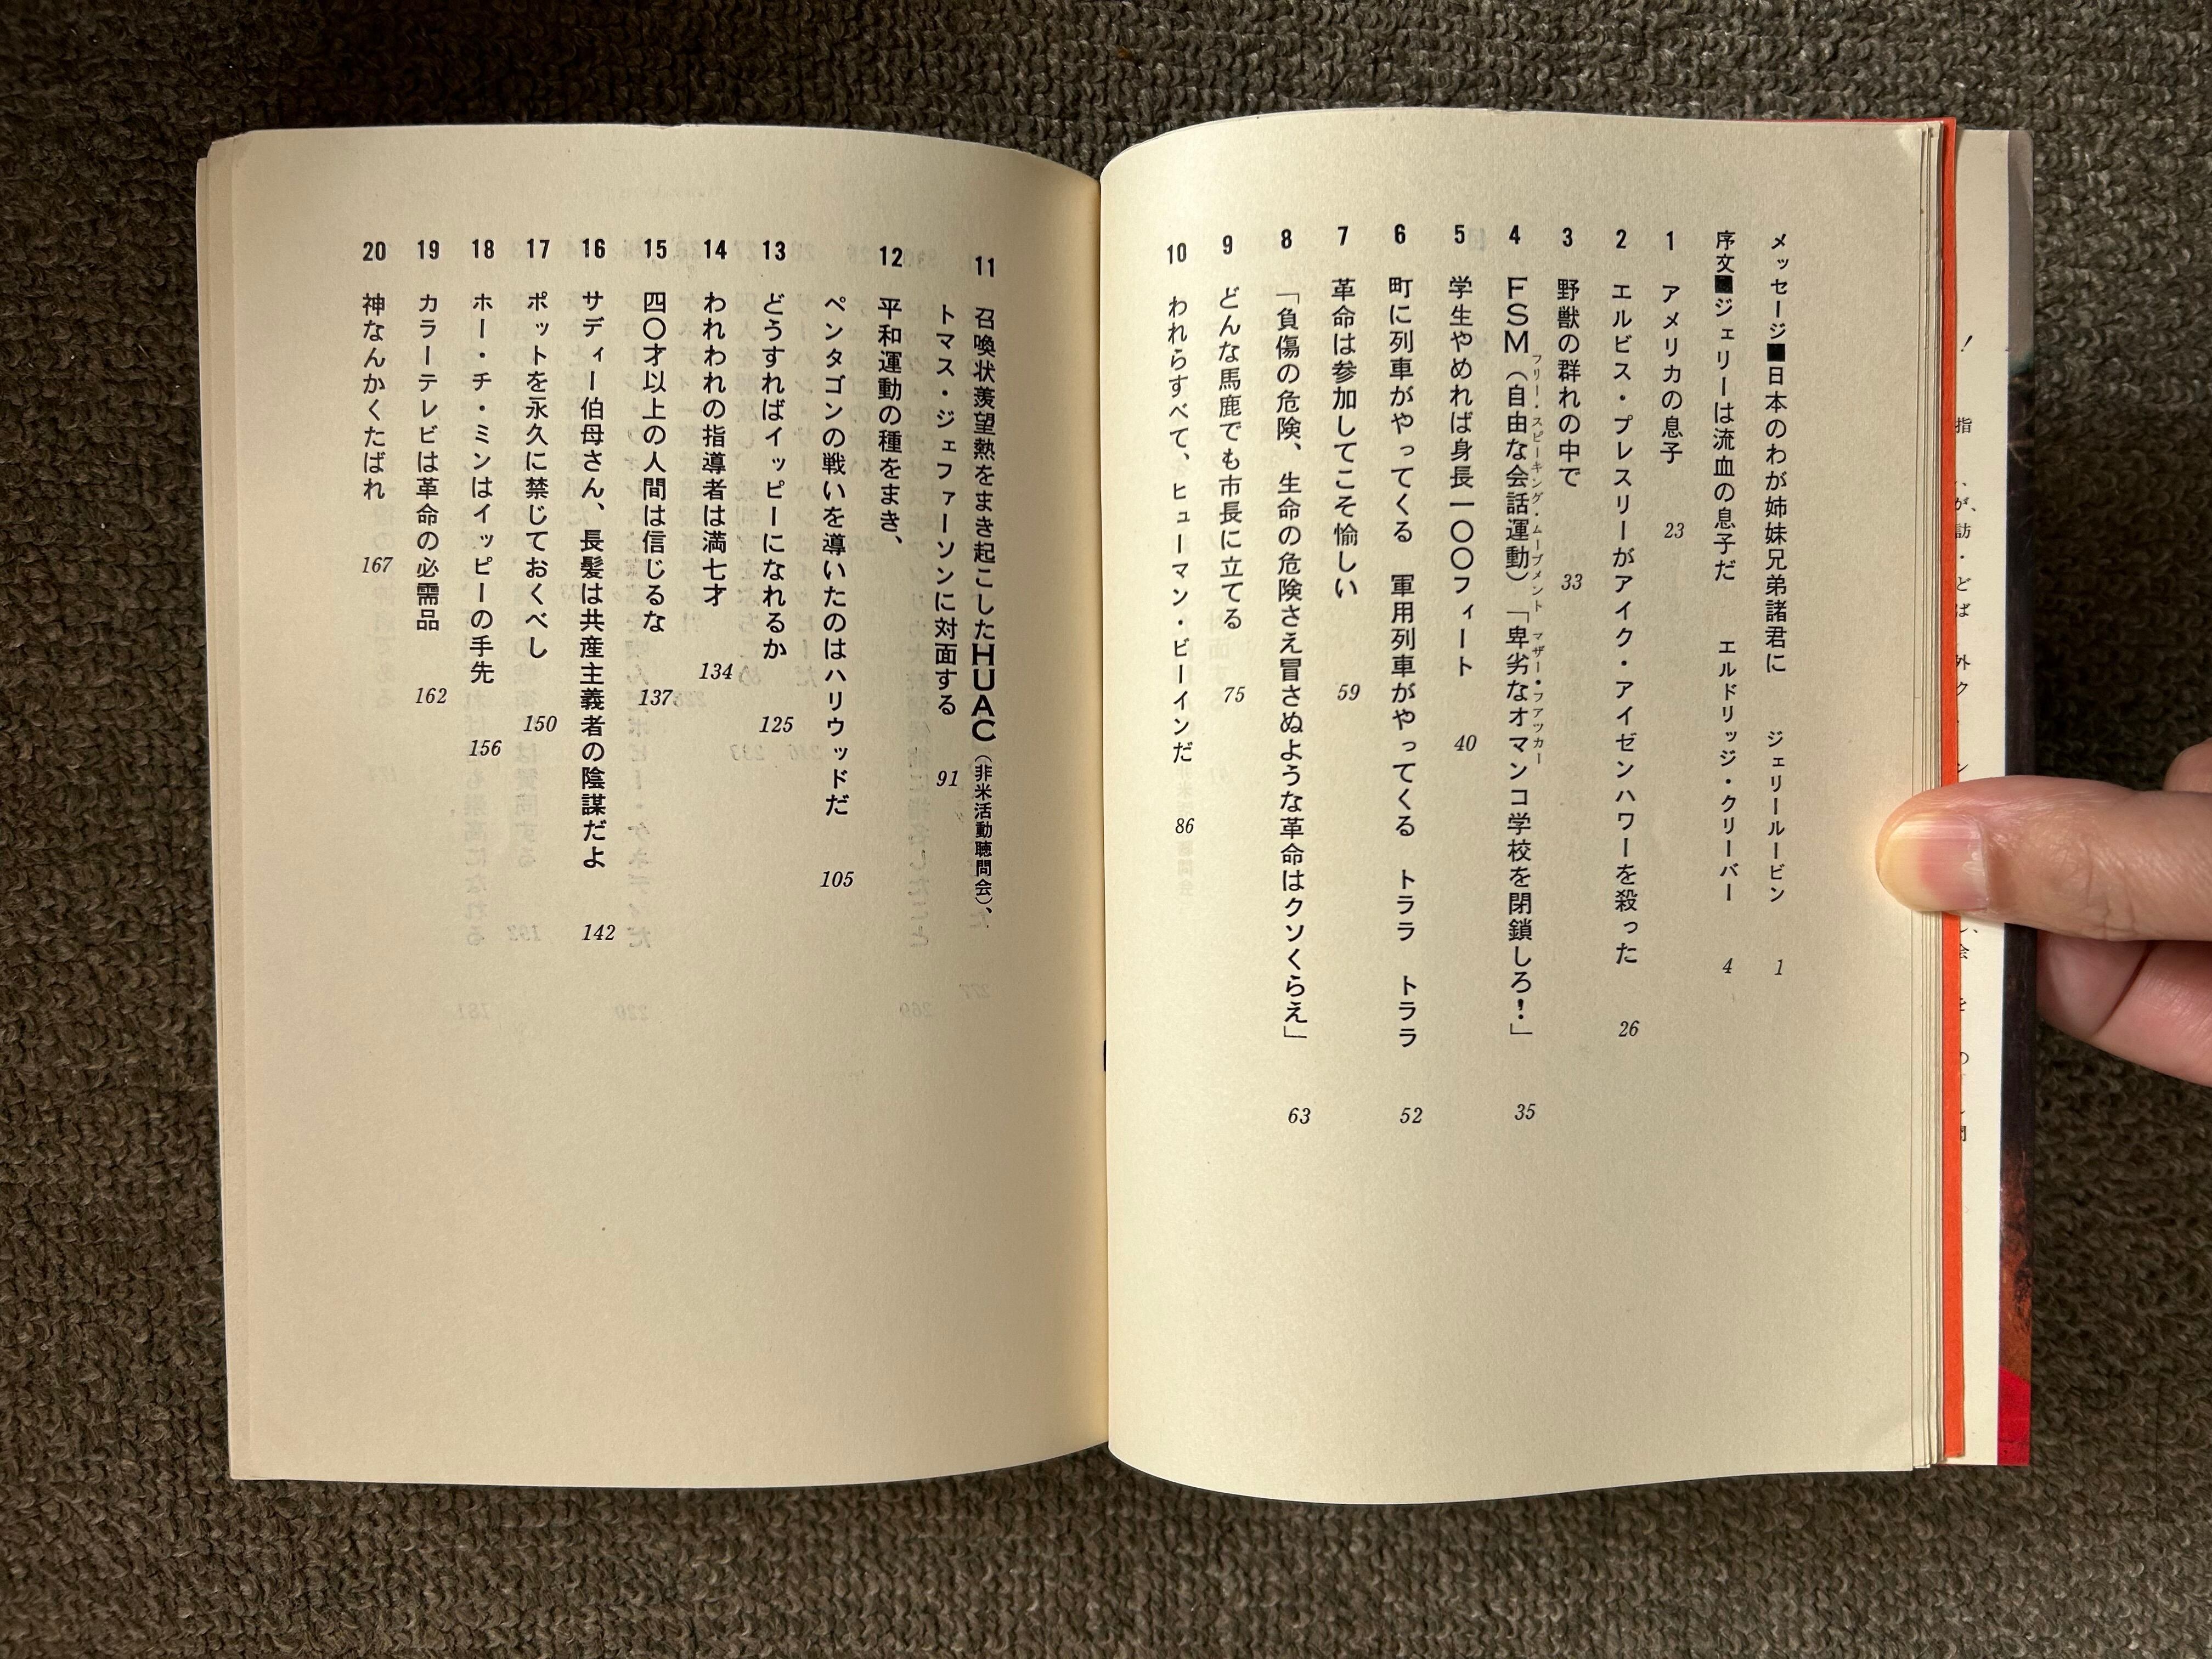 メッセージ■日本のわが姉妹兄弟諸君に　ジェリールービン　1
序文■ジェリーは流血の息子だ　エルドリッジ・クリーバー　4
1　アメリカの息子　23
2　エルビス・プレスリーがアイク・アイゼンハワーを殺った　26
3　野獣の群れの中で　33
フリー・スピーキング・ムーブメント　マザー・ファツカー
4　FSM（自由な会話運動）「卑劣なオマンコ学校を閉鎖しろ！」　35
5　学生やめれば身長一〇〇フィート　40
6　町に列車がやってくる　軍用列車がやってくる　トララ　トララ　52
7　革命は参加してこそ愉しい　59
8　「負傷の危険、生命の危険さえ冒さぬような革命はクソくらえ」　63
9　どんな馬鹿でも市長に立てる　75
10　われらすべて、ヒューマン・ビーインだ　86
11　召喚状羨望熱をまき起こしたHUAC（非米活動聴問会）、
トマス・ジェファーソンに対面する　91
12　平和運動の種をまき、
ペンタゴンの戦いを導いたのはハリウッドだ　105
13　どうすればイッピーになれるか　125
14　われわれの指導者は満七才　134
15　四〇才以上の人間は信じるな　137
16　サディー伯母さん、長髪は共産主義者の陰謀だよ　142
17　ポットを永久に禁じておくべし　150
18　ホー・チ・ミンはイッピーの手先　156
19　カラーテレビは革命の必需品　162
20　神なんかくたばれ　167